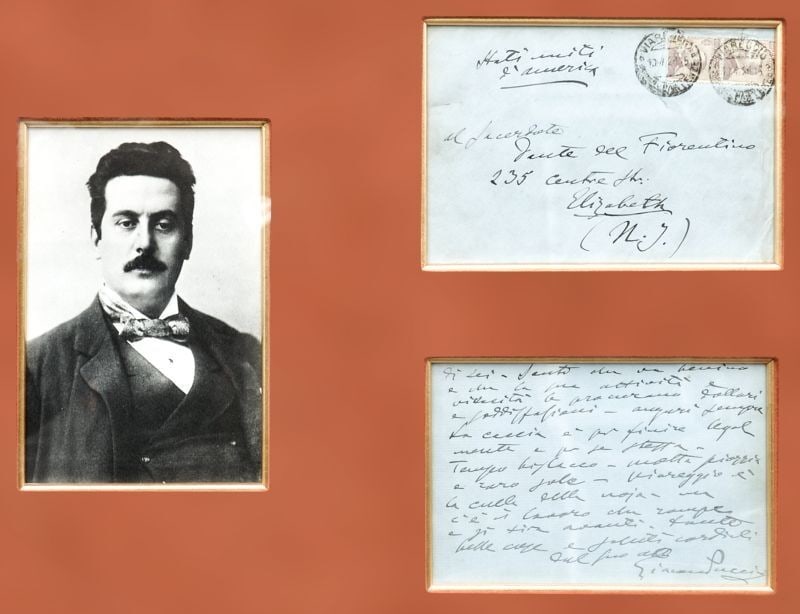 Stati uniti
d'america
VIAREGGIO
VIAREGGIO
al Sacerdote
Dante del Fiorentino
235 centre Str.
Elizabeth
(N.J.)
di sei – Sento che va benino
e che la sua attività e
le procurano dollari
e soddisfazioni – auguri sempre
La caccia è per finire legal
mente e per se stessa –
Tempo – molta pioggia
e raro sole – Viareggio è
la culla della noja – ma
c'è il lavoro che rompe
e si tira avanti. tante
belle cose e saluti cordiali
dal suo
Giacomo Puccini